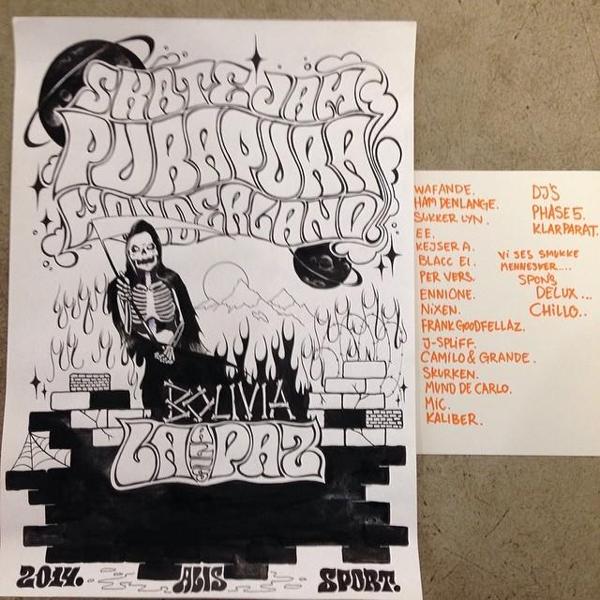 SKATE JAM
PURAPURA
WONDERLAND
BOLIVIA
LA PAZ
2014.
ALIS
SPORT.
WAFANDE.
HAM DENLANGE.
SUKKER LYN.
EE.
KEJSER A.
BLACC EL.
PER VERS.
ENNIONE.
NIXEN.
FRANK GOODFELLAZ.
J-SPLIFF.
CAMILO & GRANDE.
SKURKEN.
MUND DE CARLO.
MIC.
KALIBER.
DJ'S
PHASE 5.
KLARPARAT.
Vi SES SMUKKE
MENNESKER....
SPONS
DELUX...
CHILLO..